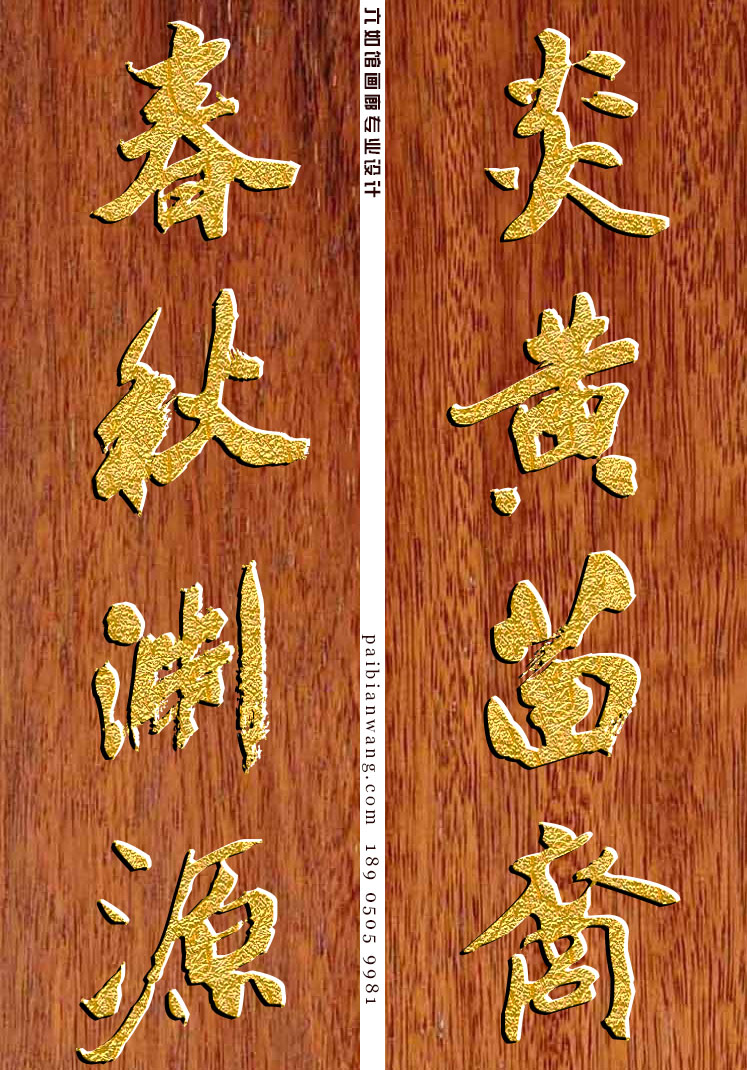 炎黄苗裔
春秋渊源
六如馆画廊专业设计
paibianwang.com 189 0505 9981